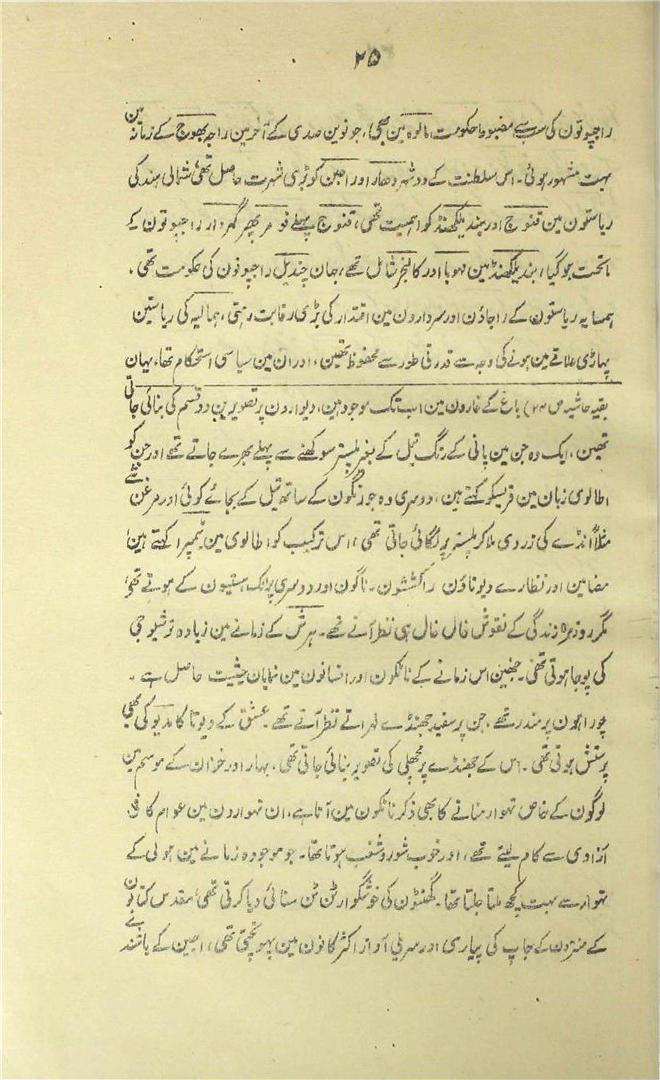 ۲۵
راجپوتون کی سب سے مضبوط حکومت، مالوہ مین تھی، جو نوین صدی کے آخر مین راجہ بھوج کے زمانہ مین
بہت مشہور ہوئی۔ اس سلطنت کے دو شہر دھار اور اجین کو بڑی شہرت حاصل تھی، شمالی ہند کی
ریاستون مین قنوج اور چندیلکھنڈ کو اہمیت تھی، قنوج پہلے تومر پھر گہروار راجپوتون کے
ماتحت ہو گیا، بندیلکھنڈ مین مہوبا اور کالنجر شامل تھے، جہان چندیل راجپوتون کی حکومت تھی،
ہمسایہ ریاستون کے راجاؤن اور سردارون مین اقتدار کی بڑی رقابت رہتی، ہمالیہ کی ریاستین
پہاڑی علاقے مین ہونے کی وجہ سے قدرتی طور سے محفوظ تھین، اور ان مین سیاسی استحکام تھا، یہان
بقیہ حاشیہ ص ۲۴) باغ کے غارون مین اب تک موجود ہین، دیوارون پر تصویرین دو قسم کی بنائی جاتی
تھین، ایک وہ جن مین پانی کے رنگ تیل کے بغیر پلستر سوکھنے سے پہلے بھرے جاتے تھے اور جن کو
اطالوی زبان مین فریسکو کہتے ہین، دوسری وہ جو رنگون کے ساتھ تیل کے بجائے کوئی اور مرغن شے
مثلاً انڈے کی زردی ملا کر پلستر پر لگائی جاتی تھی، اس ترکیب کو اطالوی مین ٹمپرا کہتے ہین،
مضامین اور نظارے دیوتاؤن راکششون۔ ناگون اور دوسری پرانک ہستیون کے ہوتے تھے،
مگر روزمرہ زندگی کے نقوش خال خال ہی نظر آتے تھے۔ ہرش کے زمانے مین زیادہ تر شیو جی
کی پوجا ہوتی تھی۔ جنہین اس زمانے کے ناٹکون اور افسانون مین نمایان حیثیت حاصل ہے۔
چوراہون پر مندر تھے، جن پر سفید جھنڈے لہراتے نظر آتے تھے۔ عشق کے دیوتا کامدیو کی بھی
پرستش ہوتی تھی۔ اس کے جھنڈے پر مچھلی کی تصویر بنائی جاتی تھی، بہار اور خزان کے موسم مین
لوگون کے خاص تہوار منانے کا بھی ذکر ناٹکون مین آتا ہے، ان تہوارون مین عوام کافی
آزادی سے کام لیتے تھے، اور خوب شور و شغب ہوتا تھا۔ جو موجودہ زمانے مین ہولی کے
تہوار سے بہت کچھ ملتا جلتا تھا۔ گھنٹون کی خوشگوار ٹن ٹن سنائی دیا کرتی تھی، مقدس کتابون
کے منترون کے جاپ کی پیاری اور سریلی آواز اکثر کانون مین پہونچتی تھی، اجین کے باشندے